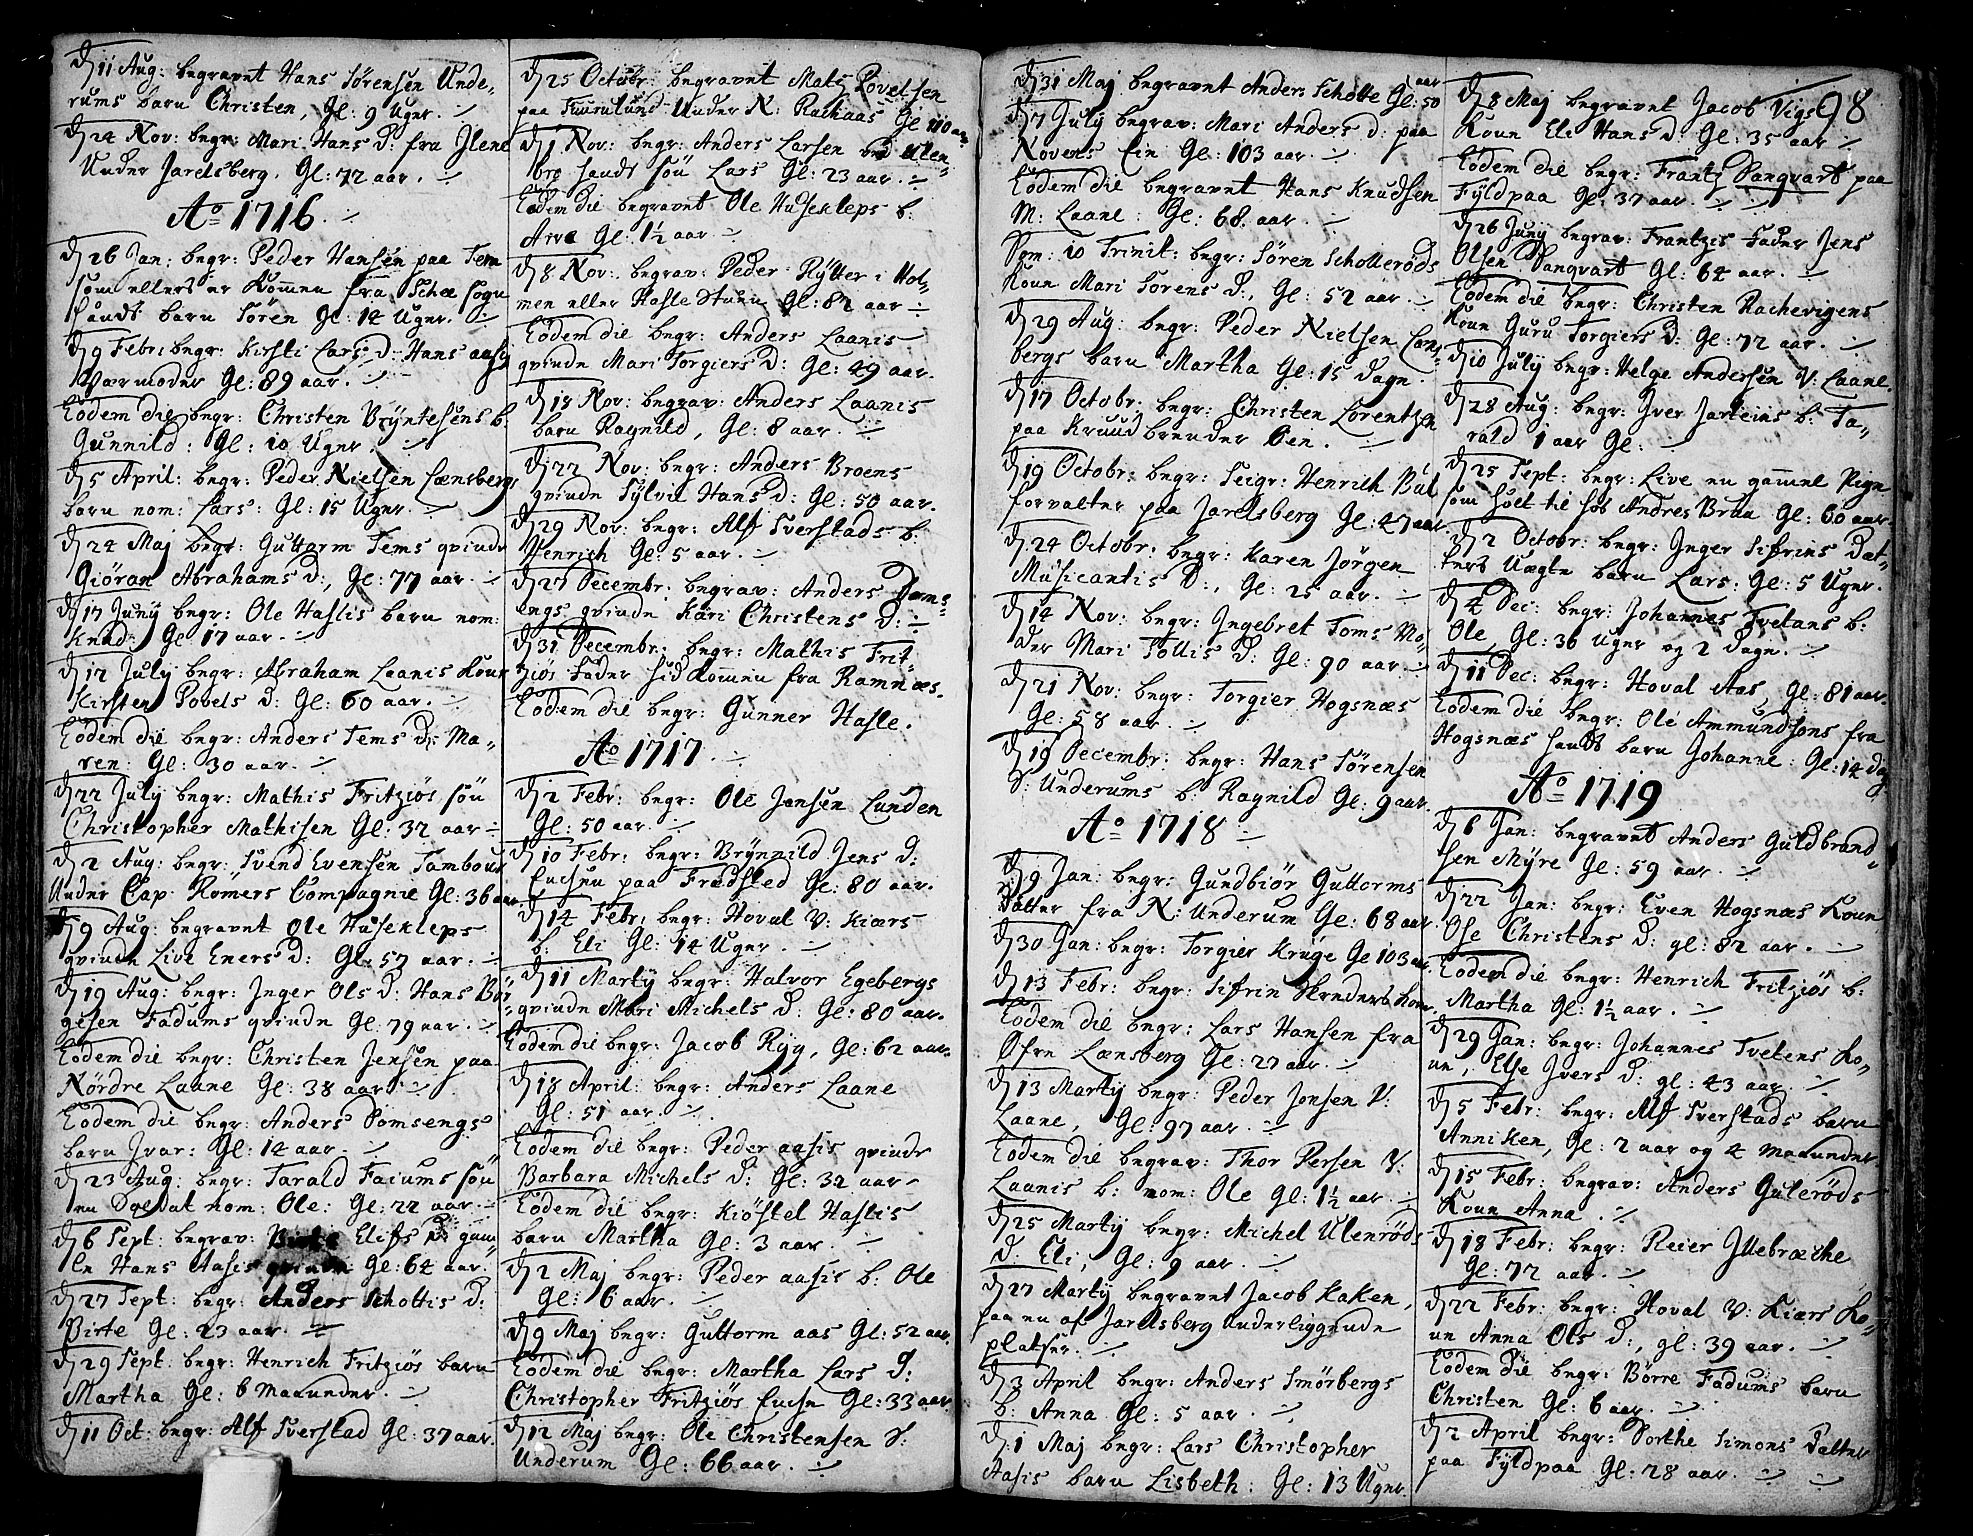 d 11 Aug: begravet Hans Sørensen Unde,,
rums barn Christen, Gl: 9 Uger.
d 24 Nov: begr: Mari Hans D: fra Ilene
Under Jarelsberg. Gl: 72 aar.
Ao 1716.
d 26 Jan: begr: Peder Hansen paa Tem
som ellers er kommen fra Schee Sogn
hands barn Sören Gl: 14 Uger.
d 9 Febr: begr: Kirsti Lars D: Hans aasis
Værmoder Gl: 89 aar.
Eodem die begr: Christen Bryntesens b:
Gunnild: Gl: 10 Uger
d 5 April: begr: Peder Nielsen Lænsbergs
barn nom: Lars: Gl: 15 Uger.
d 24 Maj begr: Guttorm Tems qvinde
Giöran Abrahams D:, Gl: 77 aar.
d 17 Junij begr: Ole Haslis barn nom:
Knud: Gl 17 aar.
d 12 July begr: Abraham Laanis Kone
Kirsten Povels D: Gl: 60 aar.
Eodem die begr: Anders Tems D: Ma,,
ren: Gl: 30 aar.
d 22 July begr: Mathis Fritziös sön
Christopher Mathisen Gl: 32 aar
d 2 Aug: begr: Svend Evensen Tambour
Under Cap. Römers Compagnie Gl: 36 aar
d 9 Aug: begravet Ole Husekleps
qvinde Live Eners D: Gl: 57 aar.
d 19 Aug: begr: Inger Ols D: Hans Bör,,
gesen Fadums qvinde Gl: 79 aar.
Eodem die begr: Christen Jensen paa
Nördre Laane Gl: 38 aar
Eodem die begr: Anders Domsengs
barn Ivar: Gl: 14 aar.
d 23 Aug: begr: Tarald Faeiums sön
en Soldat nom: Ole: Gl: 22 aar.
d 6 Sept: begrav: Elifs D: gam,,
le Hans Aasis qvinde Gl: 64 aar.
d 27 Sept: begr: Anders Schottis D:
Birte Gl: 23 aar.
d 29 Sept: begr: Henrich Fritziös barn
Martha Gl: 6 Maaneder.
d 11 Oct: begr: Alf Sverstad Gl: 37 aar.
d 25 Octobr: begravet Matz Povelsen
paa Fuurulund Under N: Rachaas Gl 110 aar
d 1 Nov: begr: Anders Larsen ved Ulen,,
bro hands sön Lars Gl: 23 aar.
Eodem die begravet Ole Husekleps b:
Arve Gl: 1½ aar
d 8 Nov: begrav: Peder Rytter i Hol,,
men eller Hasle Stuen Gl: 82 aar
Eodem die begr: Anders Laanis
qvinde Mari Torgiers D: Gl: 49 aar.
d 18 Nov: begrav: Anders Laanis
barn Ragnild, Gl: 8 aar.
d 22 Nov: begr: Anders Broens
qvinde Sylvie Hans D: Gl: 50 aar.
d 29 Nov: begr: Alf Sverstads b:
Henrich Gl: 5 aar.
d 27 Decembr: begrav: Anders Doms,,
engs qvinde Kari Christens D:
d 31 Decembr: begr: Mathis Frit,,
ziös Fader hidkommen fra Ramnæs.
Eodem die begr: Gunner Hasle.
Ao 1717.
d 2 Febr: begr: Ole Jensen Lunden
Gl: 50 aar.
d 10 Febr: begr: Brynnild Jens D:
Enchen paa Fredsted Gl: 80 aar.
d 14 Febr: begr: Hoval V: Kiærs
b: Eli Gl: 14 Uger.
d 11 Martij begr: Halvor Egebergs
qvinde Mari Michels D: Gl: 80 aar.
Eodem die begr: Jacob Ryg, Gl: 62 aar.
d 18 April: begr: Anders Laane
Gl: 51 aar.
Eodem die begr: Peder aasis qvinde
Barbara Michels D: Gl: 32 aar
Eodem die begr: Kiöstel Haslis
barn Martha Gl: 3 aar.
d 2 Maj begr: Peder aasis b: Ole
Gl: 6 aar.
d 9 Maj begr: Guttorm aas Gl: 52 aar
Eodem die begr: Martha Lars D:
Christopher Fritziös Enche Gl: 33 aar
d 12 Maj begr: Ole Christensen S:
Underum Gl: 66 aar.
d 31 Maj begravet Anders Schotte Gl: 50 aar
d 7 July begrav: Mari Anders D: paa
Novens Eie Gl: 103 aar.
Eodem die begravet Hans Knudsen
M: Laane: Gl: 68 aar.
Dom: 10 Trinit: begr: Sören Schotteröds
Kone Mari Sorens D:, Gl: 52 aar.
d 29 Aug: begr: Peder Nielsen Læns,,
bergs barn Martha Gl: 15 dage.
d 17 Octobr: begr: Christen Lorentzen
paa Knuud brender Een.
d 19 Octobr: begr: Seigr: Henrich Bul
forvalter paa Jarelsberg Gl: 47 aar
d 24 Octobr: begr: Karen Jörgen
Musicantis D:, Gl: 25 aar.
d 14 Nov: begr: Ingebret Toms Mo,,
der Mari Tollis D: Gl: 90 aar.
d 21 Nov: begr: Torgier Hogsnæs
Gl: 58 aar.
d 19 Decembr: begr: Hans Sörensen
S: Underums b: Ragnild Gl: 9 aar.
Ao 1718
d 9 Jan: begr: Gundbiör Guttorms
Datter fra N: Underum Gl: 68 aar
d 30 Jan: begr: Torgier Kruge Gl 103 aar.
d 13 Febr: begr: Sifrin Skreders Kone
Eodem die begr: Lars Hansen fra
Öfre Lænsberg Gl: 27 aar.
d 13 Martij begr: Peder Jonsen V:
Laane, Gl: 97 aar.
Eodem die begrav: Thor Persen V:
Laanis b: nom: Ole Gl: 1½ aar.
d 25 Martij begr: Michel Ulenröds
D: Eli, Gl: 9 aar.
d 27 Martij begravet Jacob Kaken,
paa en af Jarelsberg underliggende
pladser.
d 3 April begr: Anders Smörbergs
b: Anna Gl: 5 aar.
d 1 Maj begr: Lars Christopher
Aasis barn Lisbeth: Gl: 13 Uger.
98
d 8 Maj begravet Jacob Vigs
Kone Ele Hans D: Gl: 35 aar
Eodem die begr: Frantz Danqvart paa
Fyldpaa Gl: 37 aar.
d 26 Junij begrav: Frantzis Fader Jens
Olsen Danqvart Gl: 64 aar.
Eodem die begr: Christen Rachevigens
Kone Guru Torgiers D: Gl: 72 aar.
d 10 July begr: Helge Andersen V: Laane.
d 28 Aug: begr: Iver Jarleins b: Ta,,
rald 1 aar Gl:
d 25 Sept: begr: Live en gammel Pige
som holt til hos Andres Braa Gl: 60 aar.
d 2 Octobr: begr: Inger Sifrins Dat,,
ters Uægte barn Lars: Gl: 5 Uger.
d 4 Dec: begr: Johannes Tvetans b:
Ole, Gl: 36 uger og 2 dage.
d 11 Dec: begr: Hoval Aas, Gl: 81 aar.
Eodem die begr: Ole Ammundsons fra
Hogsnæs hands barn Johanne: Gl: 14 dag
Ao 1719
d 6 Jan: begravet Anders Guldbrand,,
sen Myre Gl: 59 aar.
d 22 Jan: begr: Even Hogsnæs Kone
Ose Christens D: gl: 82 aar.
Eodem die begr: Henrich Fritziös b:
Martha Gl: 1½ aar.
d 29 Jan: begr: Johannes Tvetens Ko,,
ne, Else Ivers D: gl: 43 aar.
d 5 Febr: begr: Alf Sverstads barn
Anniken, Gl: 2 aar og 4 maaneder
d 15 Febr: begrav: Anders Guleröds
Kone Anna.
d 18 Febr: begr: Reier Ittebræche
Gl: 72 aar.
d 22 Febr: begr: Hoval V: Kiærs Ko,,
ne Anna Ols D:, gl: 39 aar.
Eodem die begr: Börre Fadums barn
Christen Gl: 6 aar.
d 2 April begr: Dorthe Simons Datter
paa Fyldpaa Gl: 28 aar.